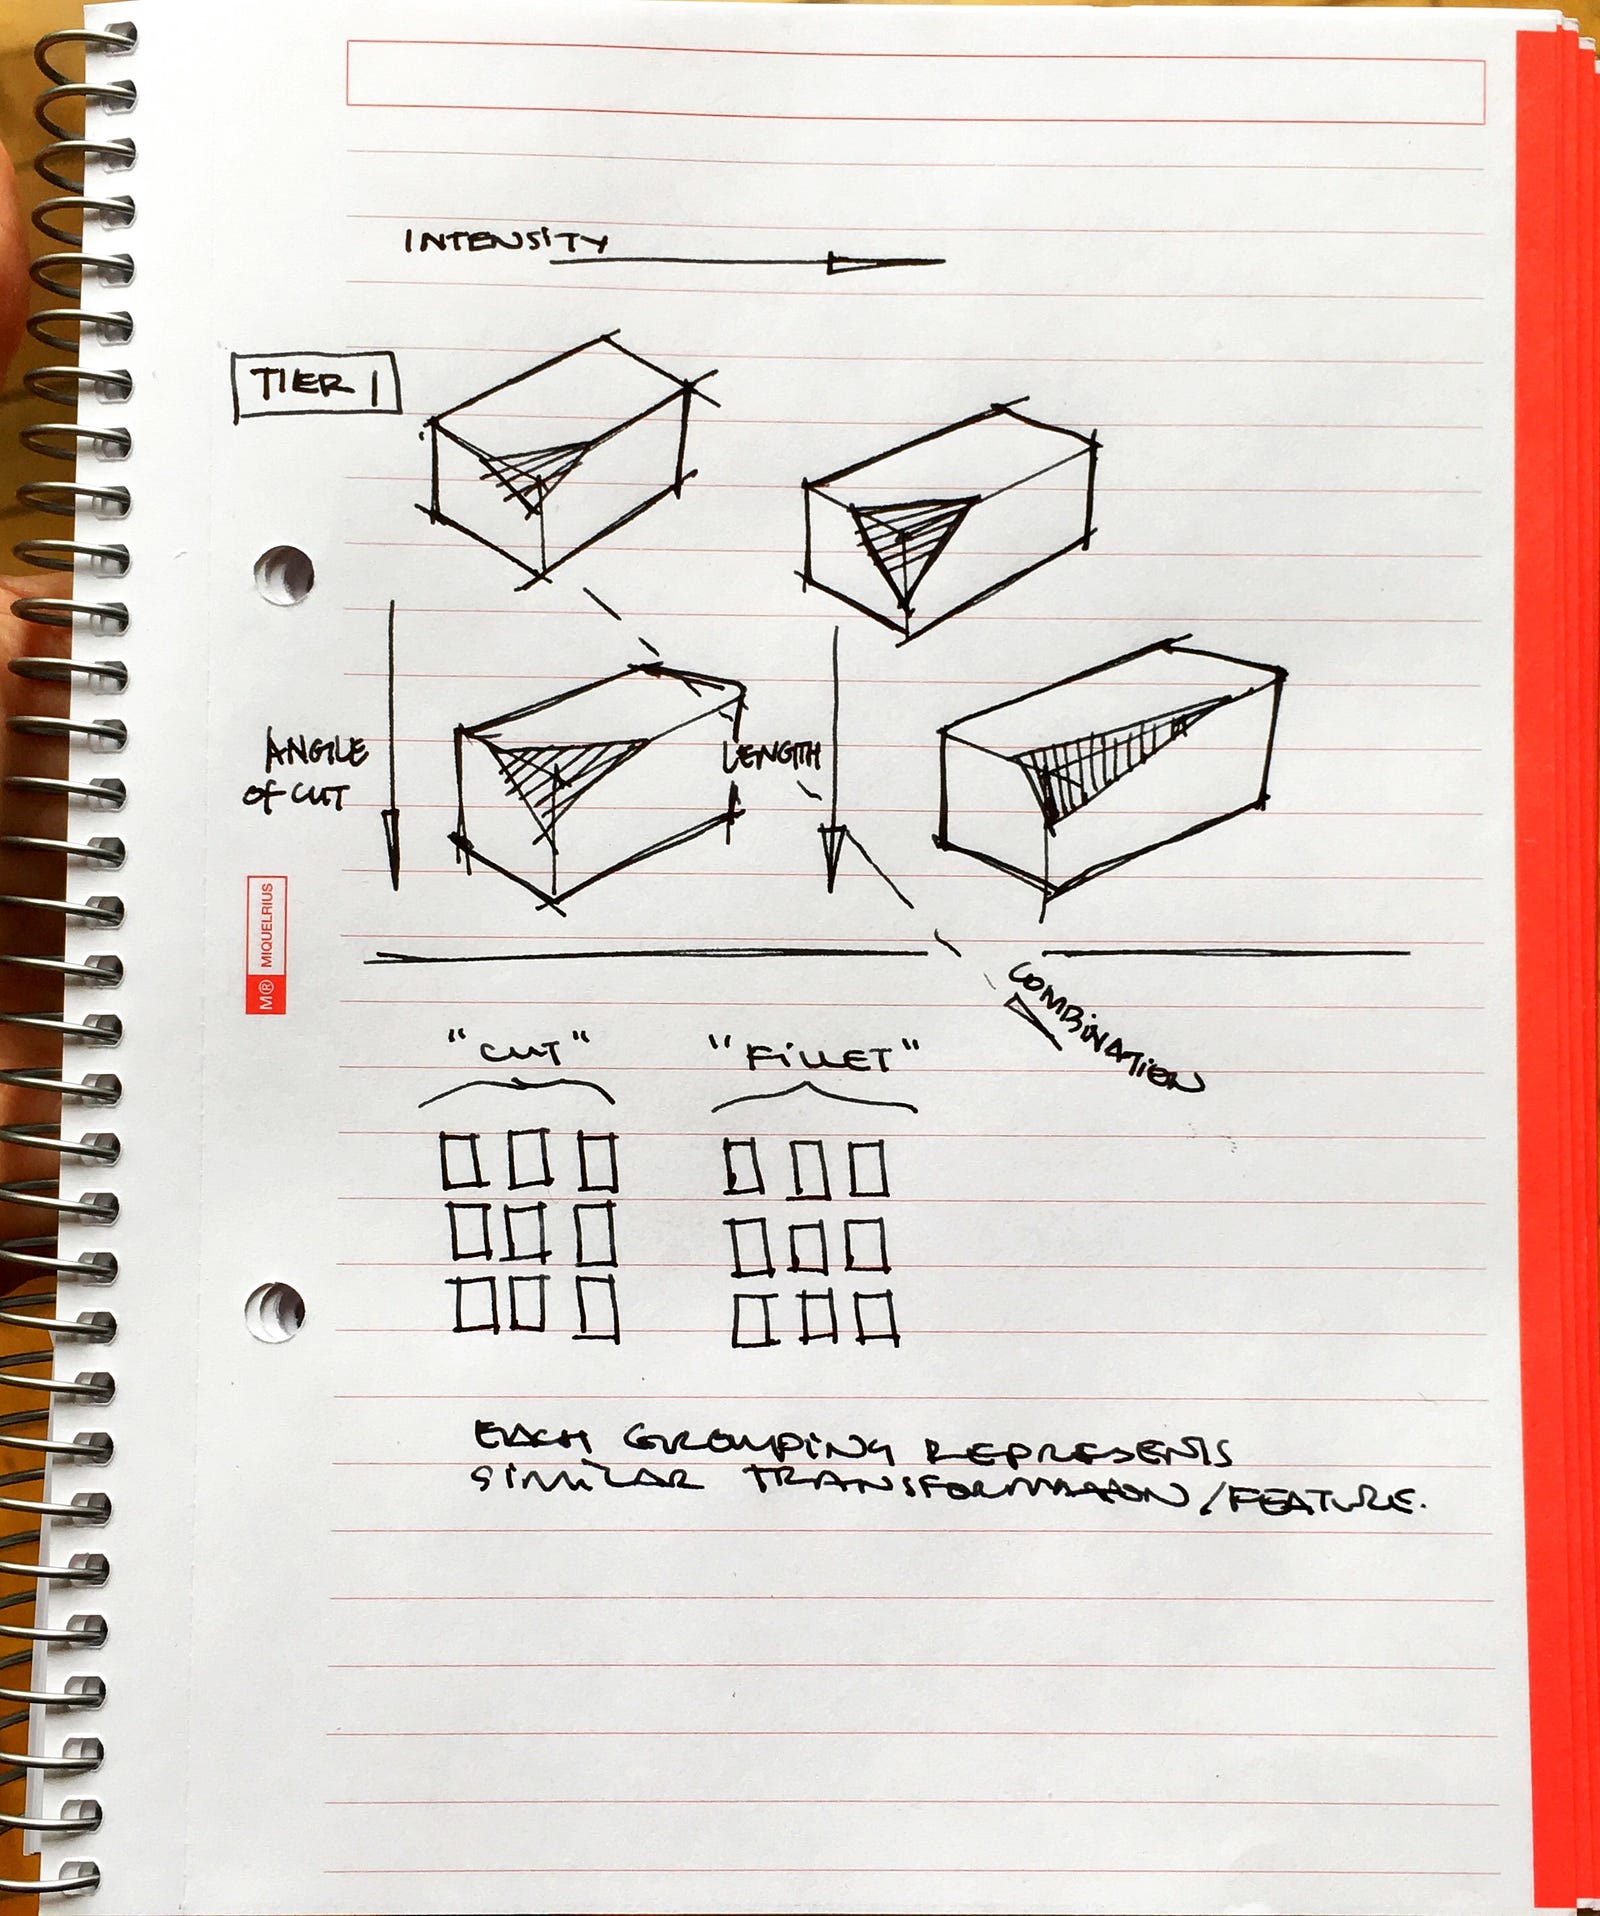 INTENSITY
TIER 1
ANGLE
OF CUT
LENGTH
M® MIQUELRIUS
COMBINATION
"CUT" "FILLET"
EACH GROUPING REPRESENTS
SIMILAR TRANSFORMATION/FEATURE.